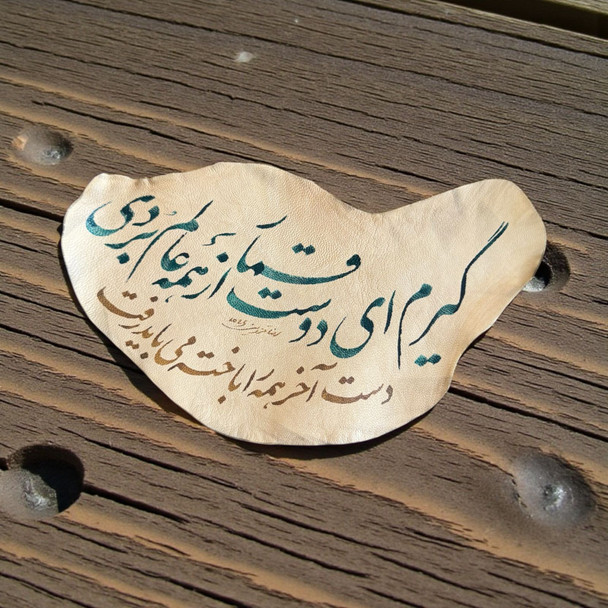 گیرم ای دوست قماَر از همهٔ عالم بُردی
دست آخر همه را باخته می باید رفت